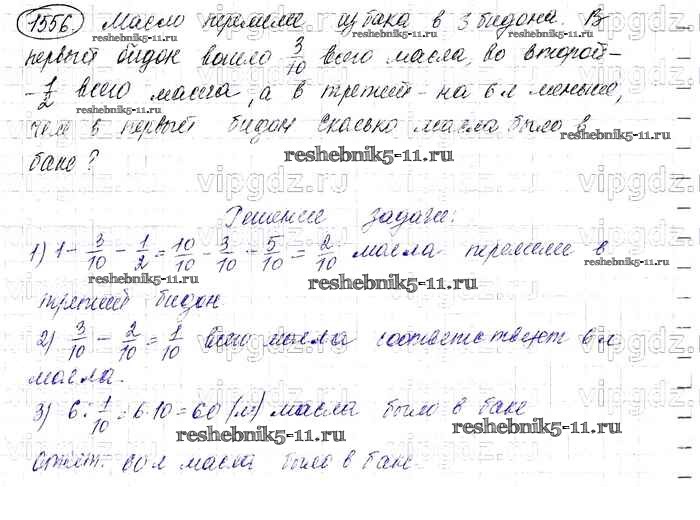 1556. Масло перелили из бака в 3 бидона. В
первый бидон вошло 3/10 всего масла, во второй –
- 1/2 всего масла, а в третий – на 6 л меньше,
чем в первый бидон. Сколько масла было в
баке?
Решение задачи:
1) 1 - 3/10 - 1/2 = 10/10 - 3/10 - 5/10 = 2/10 масла перелили в
третий бидон
2) 3/10 - 2/10 = 1/10 всего масла соответствует 6 л
масла.
3) 6 : 1/10 = 6·10 = 60 (л) масла было в баке
Ответ: 60 л масла было в баке.
reshebnik5-11.ru
vipgdz.ru